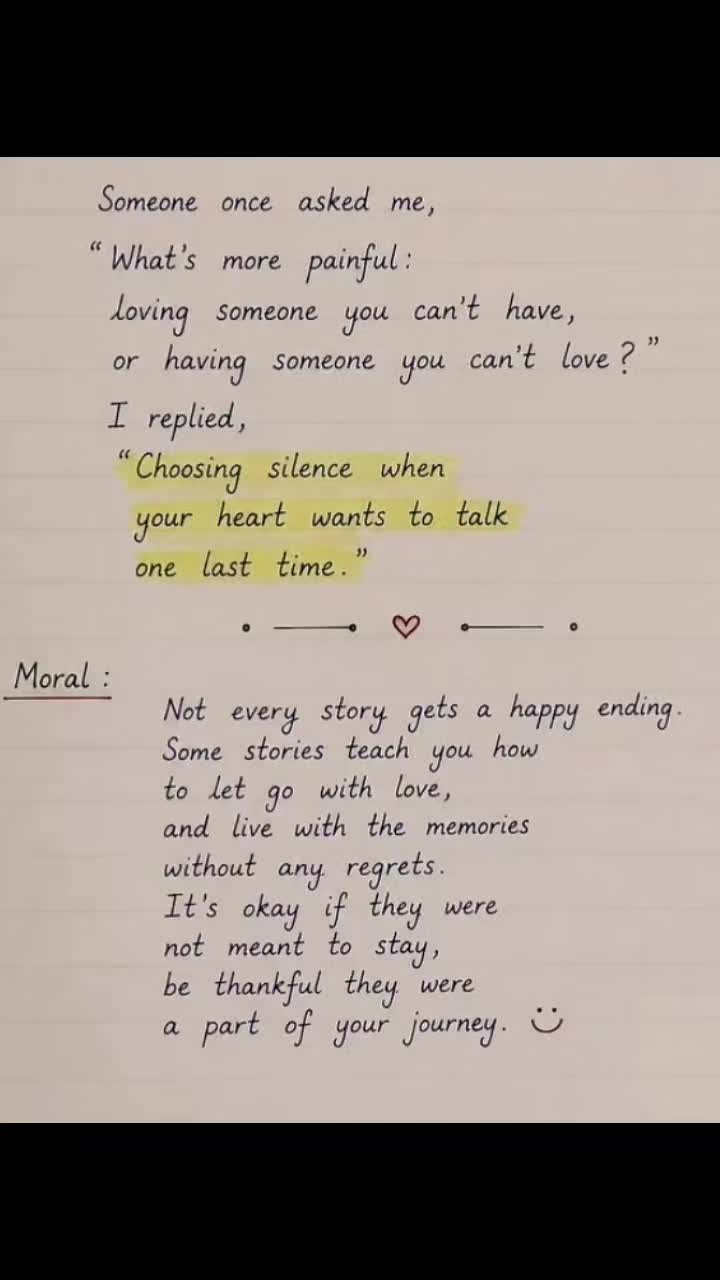 Someone once asked me,
“What's more painful:
loving someone you can't have,
or having someone you can't love?”
I replied,
“Choosing silence when
your heart wants to talk
one last time.”
Moral:
Not every story gets a happy ending.
Some stories teach you how
to let go with love,
and live with the memories
without any regrets.
It's okay if they were
not meant to stay,
be thankful they were
a part of your journey.